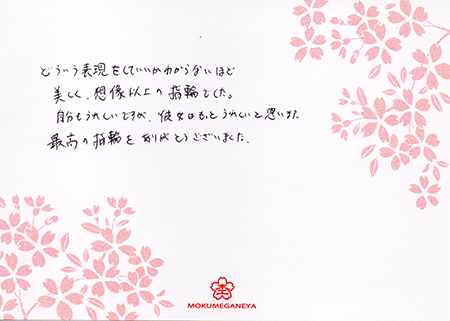 どういう表現をしていいかわからないほど
美しく、想像以上の指輪でした。
自分もうれしいですが、彼女はもっとうれしいと思います
最高の指輪をありがとうございました。
MOKUMEGANEYA